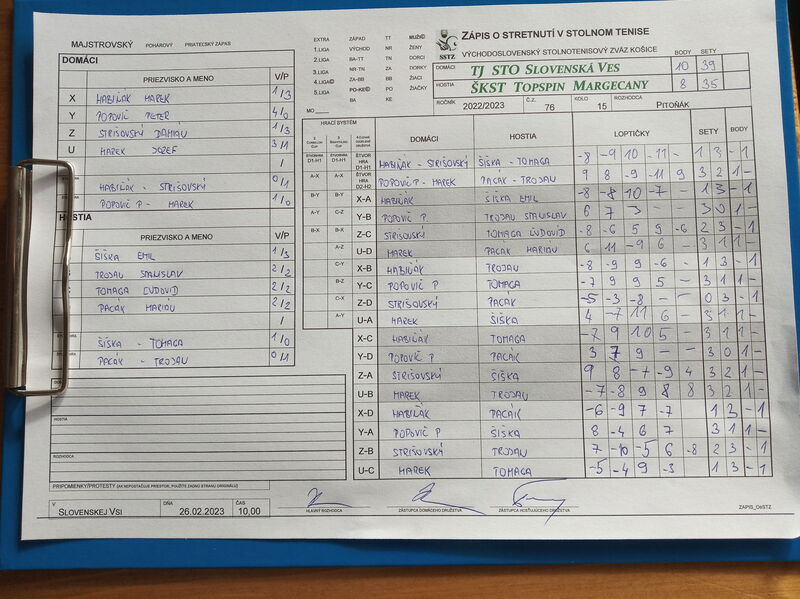 MAJSTROVSKÝ POHAROVÝ PRIATEĽSKÝ ZÁPAS
DOMÁCI
PRIEZVISKO A MENO V/P
X HABIŇÁK MAREK 1/3
Y POPOVIČ PETER 4/0
Z STRIŠOVSKÝ DAMIÁN 1/3
U MAREK JOZEF 3/1
/
HABIŇÁK - STRIŠOVSKÝ 0/1
POPOVIČ P - MAREK 1/0
HOSTIA
PRIEZVISKO A MENO V/P
ŠIŠKA EMIL 1/3
TROJAN STANISLAV 2/2
TOMAGA ĽUDOVÍD 2/2
PACÁK MARIÁN 2/2
/
ŠIŠKA - TOMAGA 1/0
PACÁK - TROJAN 0/1
HOSTIA
ROZHODCA
PRIPOMIENKY/PROTESTY (AK NEPOSTAČUJE PRIESTOR, POUŽITE ZADNÚ STRANU ORIGINÁLU)
V SLOVENSKEJ VSI DŇA 26.02.2023 ČAS 10,00
EXTRA ZÁPAD TT MUŽI
1.LIGA VÝCHOD NR ŽENY
2.LIGA BA-TT TN DORCI
3.LIGA NR-TN ZA DORKY
4.LIGA ZA-BB BB ŽIACI
5.LIGA PO-KE PO ŽIAČKY
MO BA KE
SSTZ
ZÁPIS O STRETNUTÍ V STOLNOM TENISE
VÝCHODOSLOVENSKÝ STOLNOTENISOVÝ ZVÄZ KOŠICE BODY SETY
DOMÁCI TJ STO SLOVENSKÁ VES 10 39
HOSTIA ŠKST TOPSPIN MARGECANY 8 35
ROČNÍK 2022/2023 Č.Z. 76 KOLO 15 ROZHODCA PITOŇÁK
HRACÍ SYSTÉM DOMÁCI HOSTIA LOPTIČKY SETY BODY
ŠTVORHRA D1-H1 HABIŇÁK - STRIŠOVSKÝ ŠIŠKA - TOMAGA -8 -9 10 -11 - 1 3 - 1
A-X ŠTVORHRA D2-H2 POPOVIČ P - MAREK PACÁK - TROJAN 9 8 -9 -11 9 3 2 1 -
B-Y B-Y X-A HABIŇÁK ŠIŠKA EMIL -8 -8 10 -7 - 1 3 - 1
A-Y C-Z Y-B POPOVIČ P. TROJAN STANISLAV 6 7 3 - - 3 0 1 -
B-X B-X Z-C STRIŠOVSKÝ TOMAGA ĽUDOVÍD -8 -6 5 9 -6 2 3 - 1
A-Z U-D MAREK PACÁK MARIÁN 6 11 -9 6 - 3 1 1 -
C-Y X-B HABIŇÁK TROJAN -8 -9 9 -6 - 1 3 - 1
B-Z Y-C POPOVIČ P. TOMAGA -7 9 9 5 - 3 1 1 -
C-X Z-D STRIŠOVSKÝ PACÁK -5 -3 -8 - - 0 3 - 1
A-Y U-A MAREK ŠIŠKA 4 -7 11 6 - 3 1 1 -
X-C HABIŇÁK TOMAGA -7 9 10 5 - 3 1 1 -
Y-D POPOVIČ P PACÁK 3 7 9 - - 3 0 1 -
Z-A STRIŠOVSKÝ ŠIŠKA 9 8 -7 -9 4 3 2 1 -
U-B MAREK TROJAN -7 -8 9 8 8 3 2 1 -
X-D HABIŇÁK PACÁK -6 -9 7 -7 1 3 - 1
Y-A POPOVIČ P ŠIŠKA 8 -4 6 7 3 1 1 -
Z-B STRIŠOVSKÝ TROJAN 7 -10 -5 6 -8 2 3 - 1
U-C MAREK TOMAGA -5 -4 9 -3 1 3 - 1
HLAVNÝ ROZHODCA ZÁSTUPCA DOMÁCEHO DRUŽSTVA ZÁSTUPCA HOSŤUJÚCEHO DRUŽSTVA
ZAPIS_OeSTZ